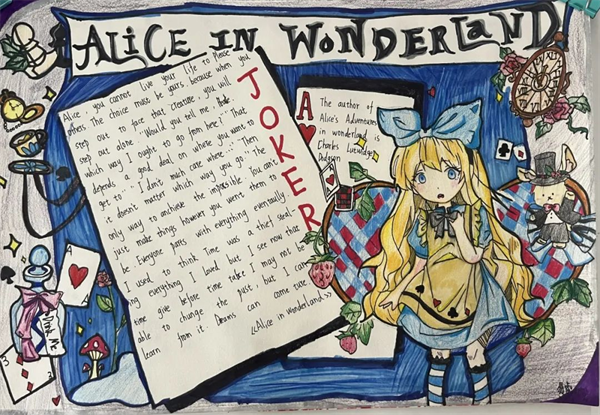 ALiCE IN WONDERLaND
Alice, you cannot live your life to please
others. The choice must be yours, because when you
step out to face that creature, you will
step out alone. "Would you tell me, please,
which way I ought to go from here?" "That
depends a good deal on where you want to
get to." "I don't much care where..." "Then
it doesn't matter which way you go." The
only way to anchieve the impossible. You can't
just make things however you went them to
be. Everyone parts with everything eventually.
I used to think Time was a thief steal-
ing everything I loved but I see now that
time give before time take. I may not be
able to change the past, but I can
learn from it. Dreams can come true.
<<Alice in wonderland>>
JOKER
A
The author of
Alice's Adventures
in wonderland is
Charles Lutwidge
Dodgson
A
Drink Me
3
3